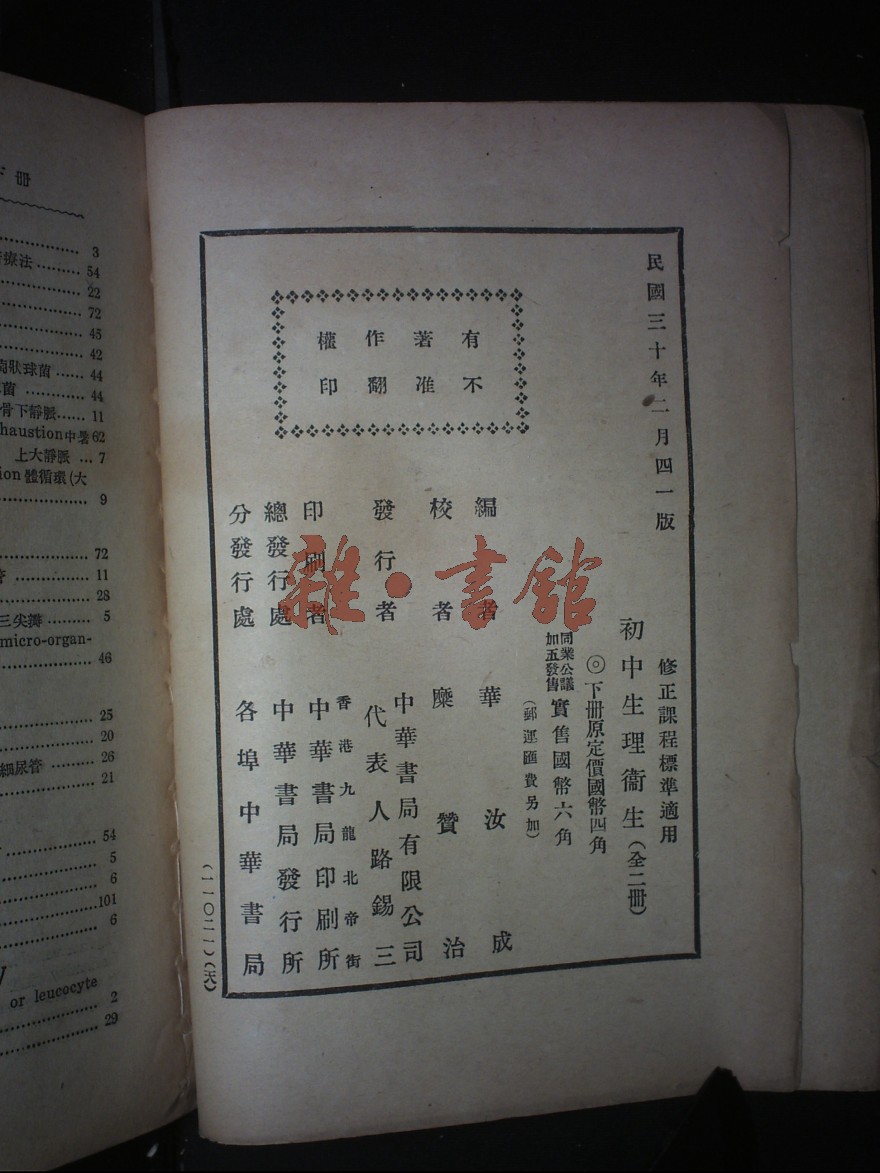 下冊
3
療法 54
22
72
45
42
狀球菌 44
菌 44
骨下靜脈 11
haustion中暑 62
上大靜脈 7
ion體循環(大
9
72
管 11
28
三尖瓣 5
micro-organ-
46
25
20
細尿管 26
21
54
5
6
101
6
or leucocyte
2
29
民國三十年二月四一版
修正課程標準適用
初中生理衞生(全二冊)
◎下冊原定價國幣四角
同業公議加五發售
實售國幣六角
(郵運匯費另加)
有著作權
不准翻印
編者 華汝成
校者 糜贊治
發行者 中華書局有限公司
代表人路錫三
印刷者 香港九龍北帝街
中華書局印刷所
總發行處 中華書局發行所
分發行處 各埠中華書局
(一一〇二一)(天)
雜·書館